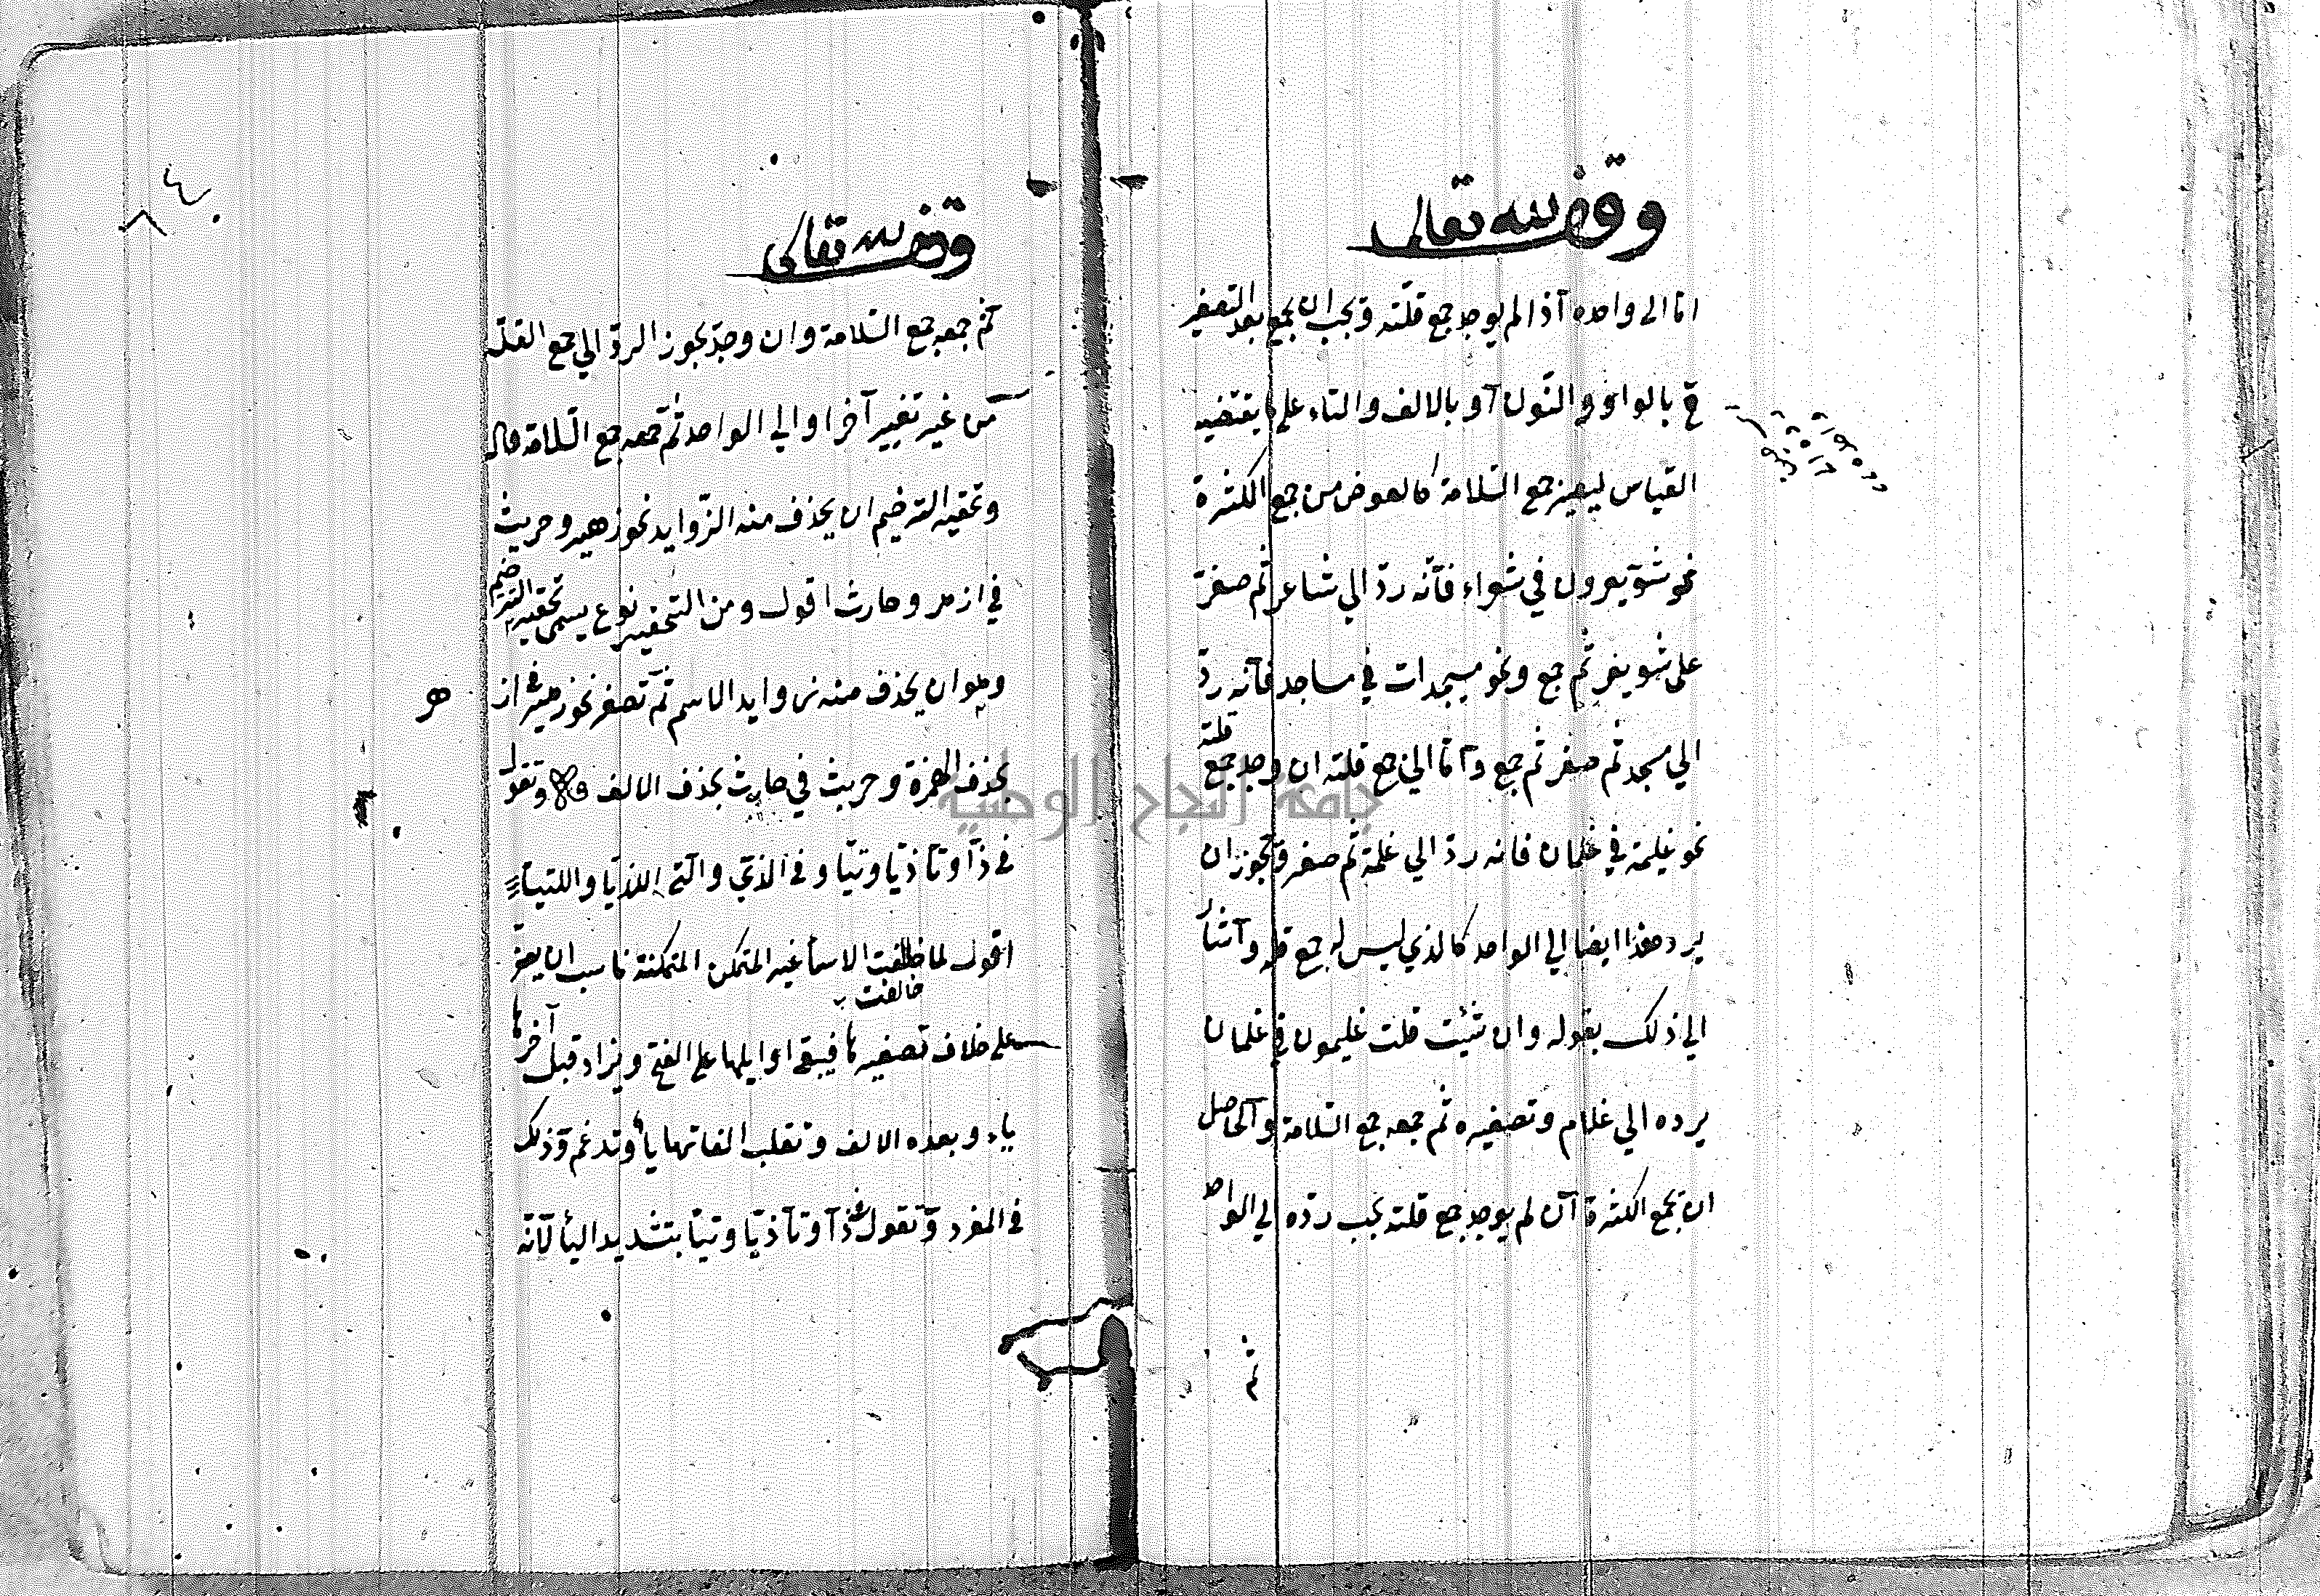 وقف لله تعالى
اما الى واحده اذا لم يوجد جمع قلته ويجب ان يجمع بعد التصغير
ح بالواو والنون او بالالف والتاء على ما يقتضيه
القياس ليصير جمع السلامة كالعوض من جمع الكثرة
نحو شويعرون في شعراء فانه ردّ الي شاعر ثم صغر
على شويعر ثم جمع ونحو مسيجدات في مساجد فانه ردّ
الي مسجد ثم صغر ثم جمع واما الي جمع قلته ان وجد جمع قلته
نحو غليمة في غلمان فانه ردّ الي غلمة ثم صغر ويجوز ان
يرد هذا ايضا الي الواحد كالذي ليس له جمع قلة واشار
الي ذلك بقوله وان شئت قلت غليمون في غلمان
يرده الي غلام وتصغيره ثم جمعه جمع السلامة والحاصل
ان جمع الكثرة ان لم يوجد جمع قلته يجب ردّه الي الواحد
ثم
وقف لله تعالى
ثم جمعه جمع السلامة وان وجد يجوز الردّ الي جمع القلة
من غير تغيير آخر او الي الواحد ثم جمعه جمع السلامة قال
وتحقير الترخيم ان يحذف منه الزوايد نحو زهير وحريث
في ازهر وحارث اقول ومن التحقير نوع يسمى تحقير الترخيم
وهو ان يحذف منه زوايد الاسم ثم تصغر نحو زهير في از
هر
بحذف الهمزة وحريث في حارث بحذف الالف وتقول
في ذا وتا ذيّا وتيّا وفي الذي والتي اللذيّا واللتيّا
اقول لما خالفت الاسما غير المتمكن المتمكنة ناسب ان يصغر
خالفت
على خلاف تصغيرها فيبقى اوايلها على الفتح ويزاد قبل آخرها
ياء وبعده الالف وتقلب الفاتها ياء وتدغم وذلك
في المفرد وتقول في ذا وتا ذيّا وتيّا بتشديد اليا لانّه
جامعة النجاح الوطنية